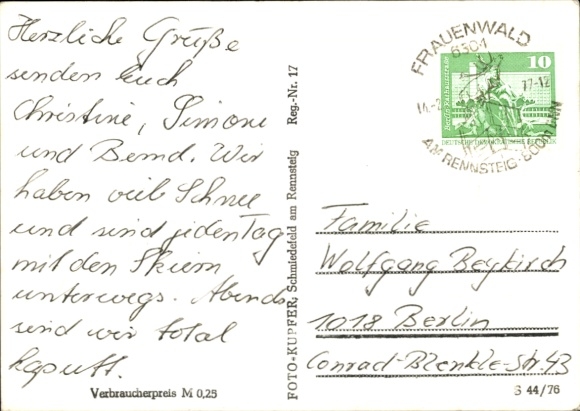 Herzliche Grüße
senden Euch
Christine, Simone
und Bernd. Wir
haben viel Schnee
und sind jeden Tag
mit den Skiern
unterwegs. Abends
sind wir total
kaputt.
Verbraucherpreis M 0,25
FOTO-KUPFER, Schmiedefeld am Rennsteig Reg.-Nr. 17
FRAUENWALD
6301
17-12
AM RENNSTEIG
10
DEUTSCHE DEMOKRATISCHE REPUBLIK
Familie
Wolfgang Beykirch
1018 Berlin
Conrad-Blenkle-Str. 43
S 44/76